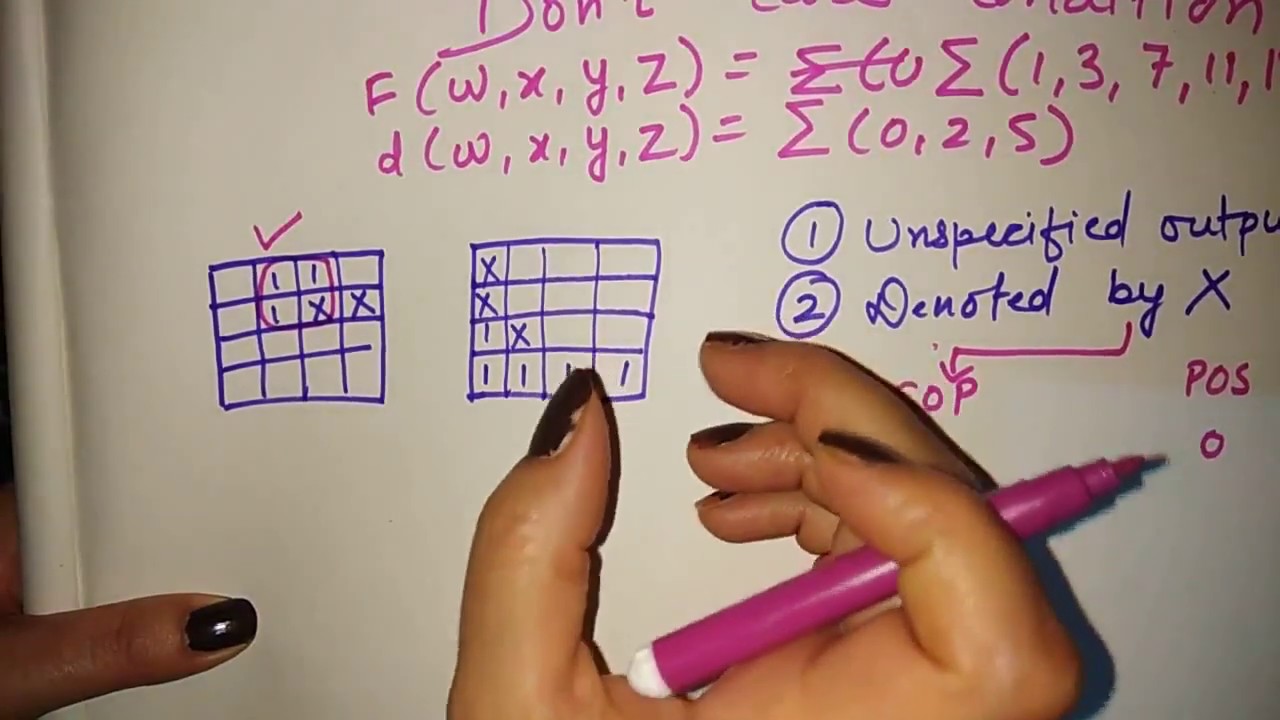 Don't care condition
F(w,x,y,z) = Σ(0 Σ(1,3,7,11,1
d(w,x,y,z) = Σ(0,2,5)
① Unspecified outpu
② Denoted by X
SOP POS
0
1 1
1 X X
X
X
1 X
1 1 1 1